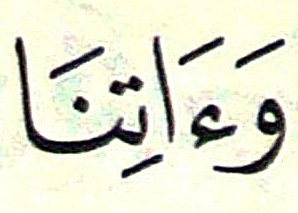 وَءَاتِنَا